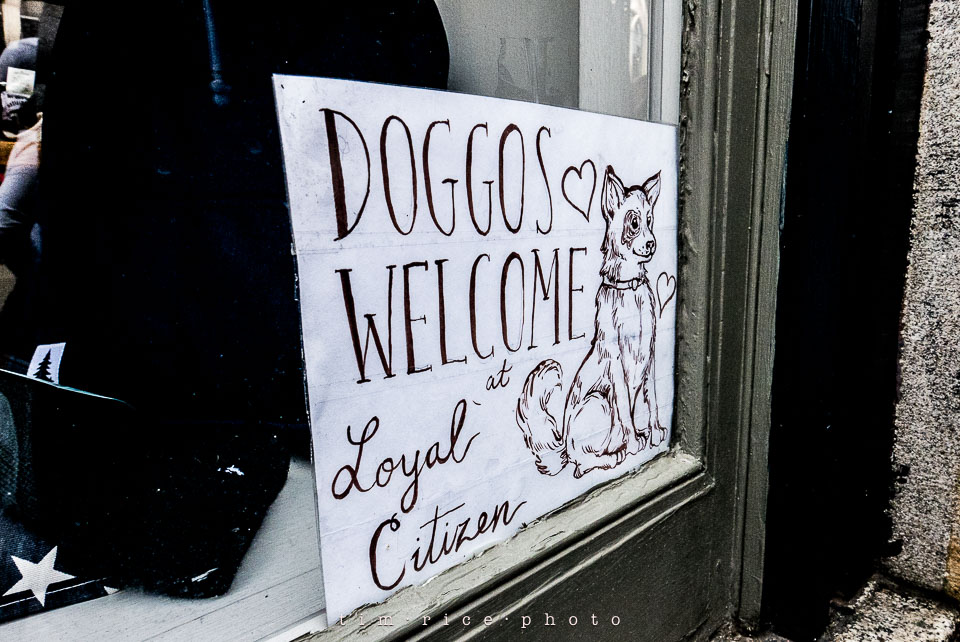 DOGGOS
WELCOME
at
Loyal
Citizen
tim·rice·photo